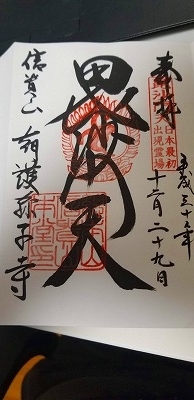 奉拝
日本最初
出現霊場
平成三十年
十二月二十九日
毘沙門天
信貴山 朝護孫子寺